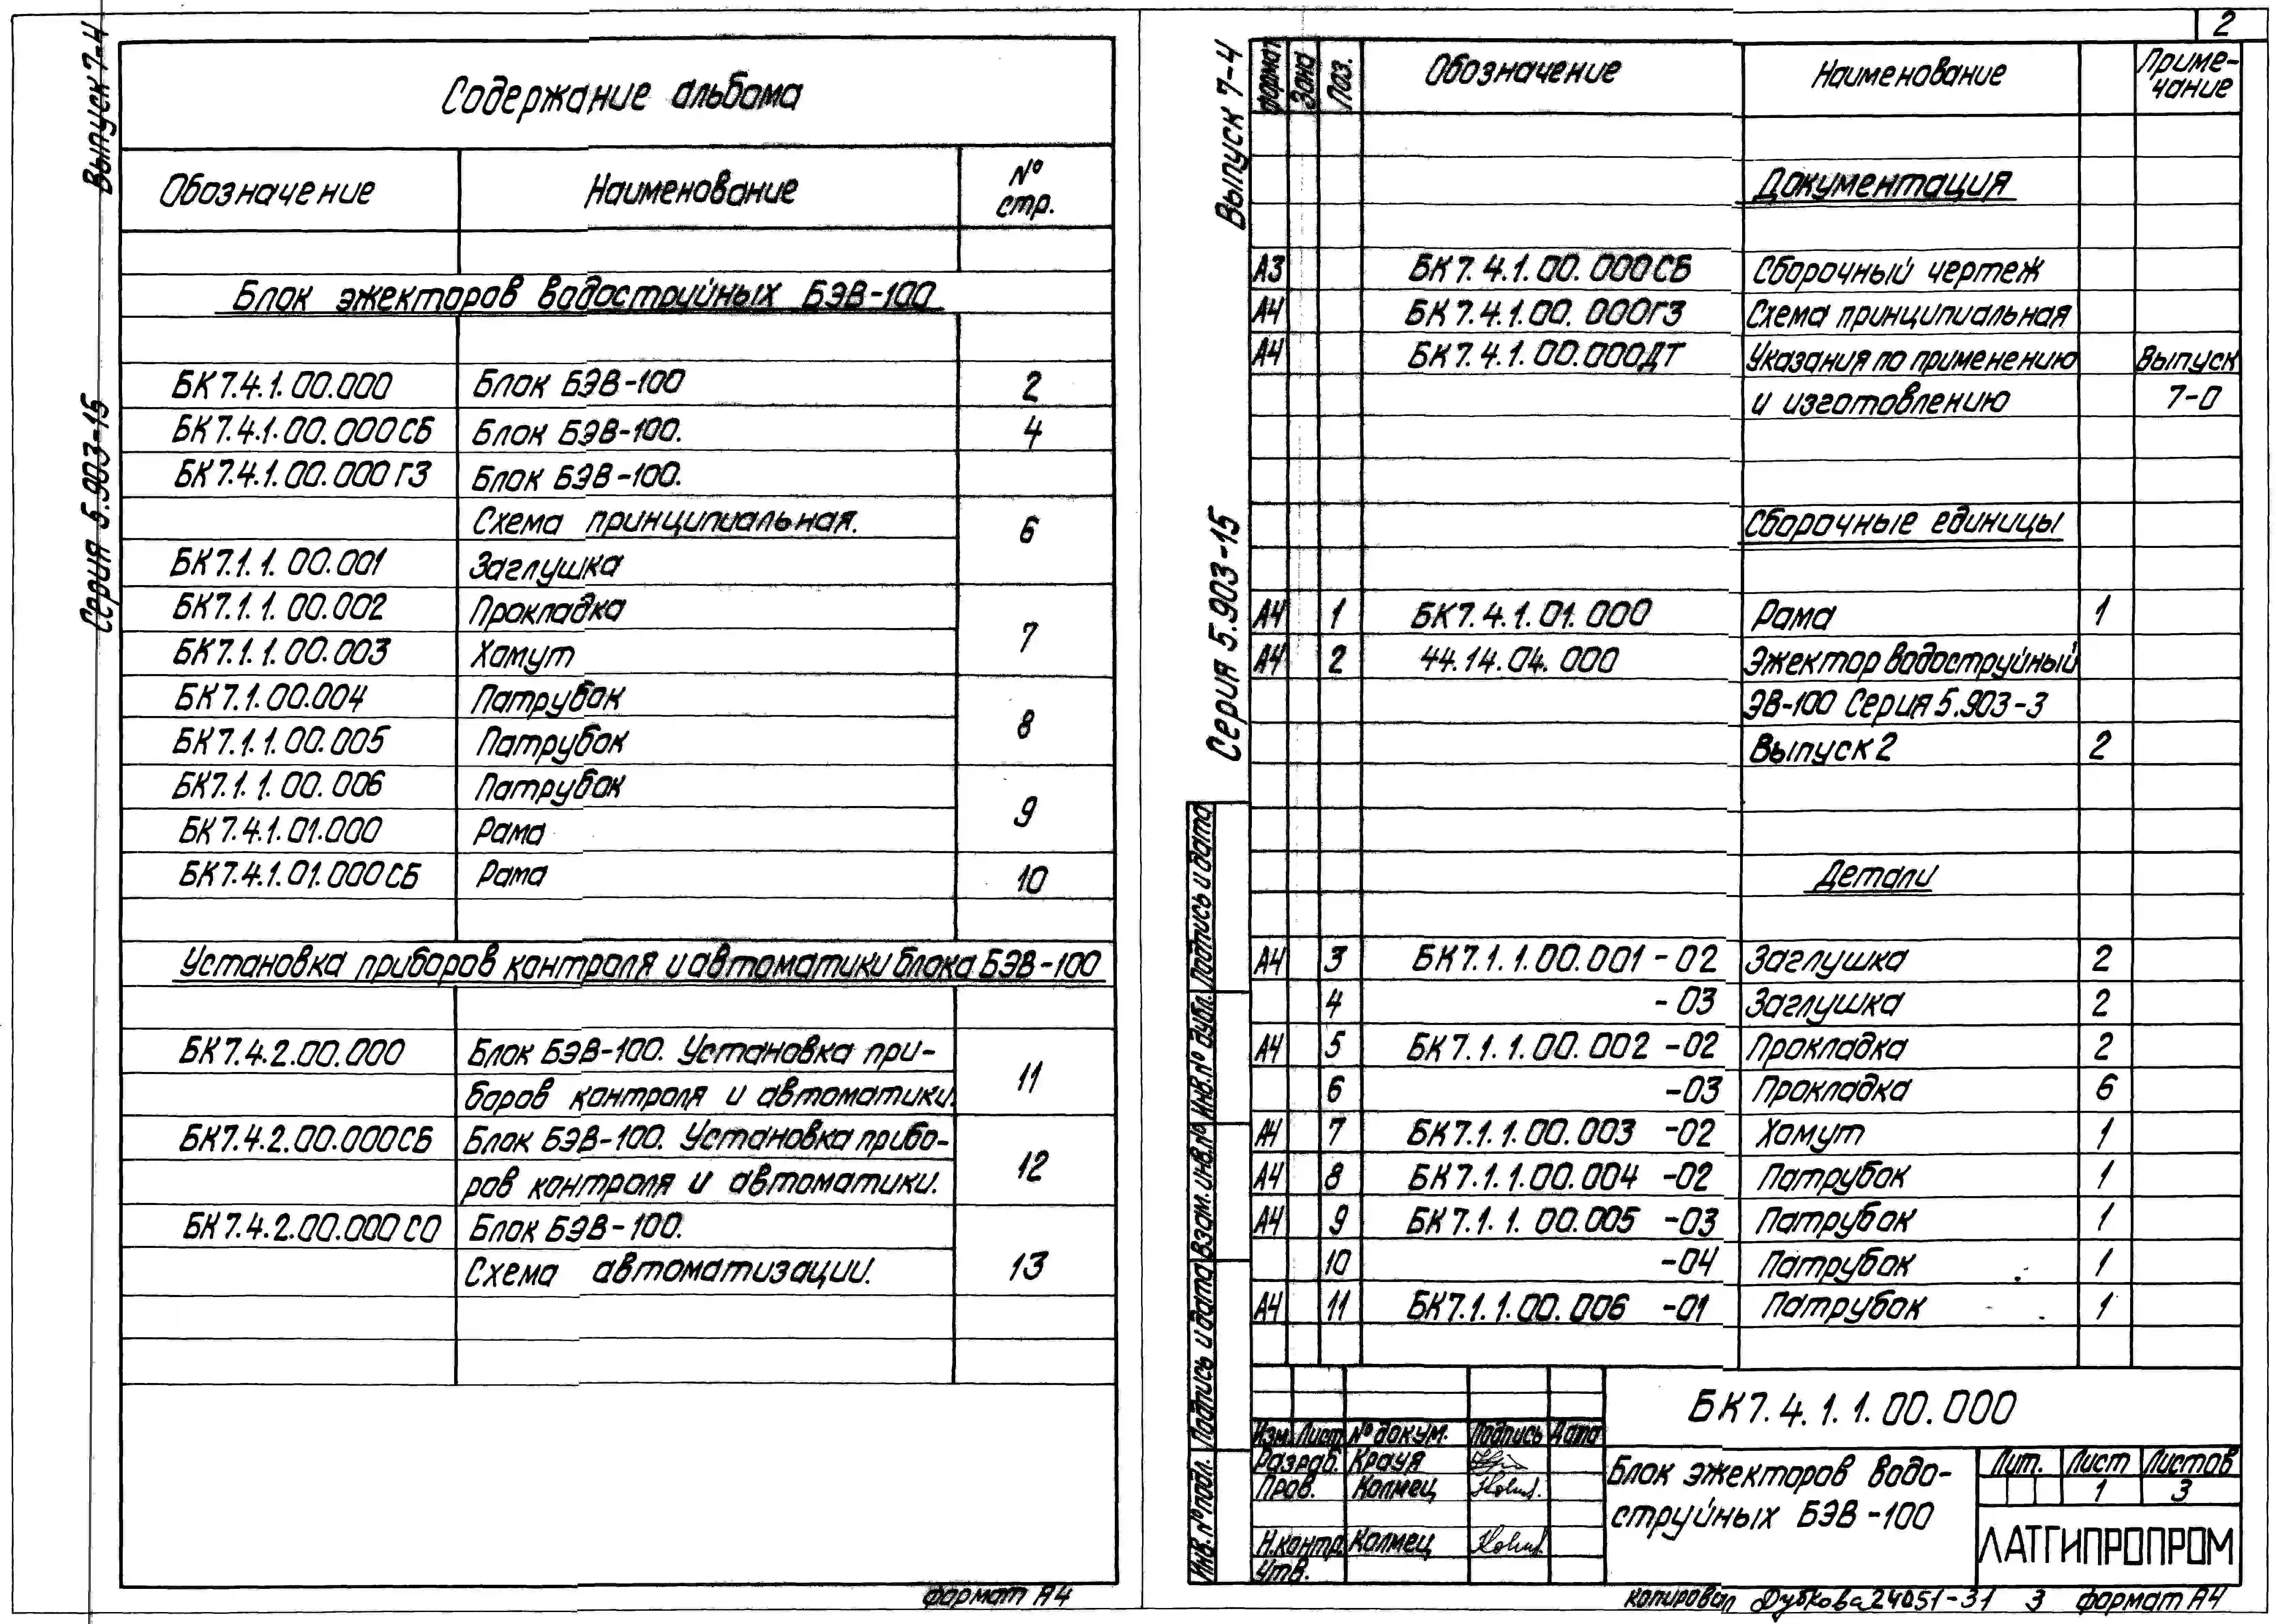 Выпуск 7-4
Серия 5.903-15
Содержание альбома
Обозначение Наименование № стр.
Блок эжекторов водоструйных БЭВ-100
БК7.4.1.00.000 Блок БЭВ-100 2
БК7.4.1.00.000СБ Блок БЭВ-100. 4
БК7.4.1.00.000ГЗ Блок БЭВ-100.
Схема принципиальная. 6
БК7.1.1.00.001 Заглушка
БК7.1.1.00.002 Прокладка
БК7.1.1.00.003 Хомут 7
БК7.1.00.004 Патрубок
БК7.1.1.00.005 Патрубок 8
БК7.1.1.00.006 Патрубок
БК7.4.1.01.000 Рама 9
БК7.4.1.01.000СБ Рама 10
Установка приборов контроля и автоматики блока БЭВ-100
БК7.4.2.00.000 Блок БЭВ-100. Установка при-
боров контроля и автоматики. 11
БК7.4.2.00.000СБ Блок БЭВ-100. Установка прибо-
ров контроля и автоматики. 12
БК7.4.2.00.000СО Блок БЭВ-100.
Схема автоматизации. 13
формат А4
2
Выпуск 7-4
Серия 5.903-15
формат Зона Поз. Обозначение Наименование Приме-
чание
Документация
А3 БК7.4.1.00.000СБ Сборочный чертеж
А4 БК7.4.1.00.000ГЗ Схема принципиальная
А4 БК7.4.1.00.000ДТ Указания по применению Выпуск
и изготовлению 7-0
Сборочные единицы
А4 1 БК7.4.1.01.000 Рама 1
А4 2 44.14.04.000 Эжектор водоструйный
ЭВ-100 Серия 5.903-3
Выпуск 2 2
Детали
А4 3 БК7.1.1.00.001-02 Заглушка 2
4 -03 Заглушка 2
А4 5 БК7.1.1.00.002-02 Прокладка 2
6 -03 Прокладка 6
А4 7 БК7.1.1.00.003-02 Хомут 1
А4 8 БК7.1.1.00.004-02 Патрубок 1
А4 9 БК7.1.1.00.005-03 Патрубок 1
10 -04 Патрубок 1
А4 11 БК7.1.1.00.006-01 Патрубок 1
Подпись и дата
Инв.№ дубл.
Взам.инв.№
Подпись и дата
Инв.№ подл.
БК7.4.1.1.00.000
Изм. Лист № докум. Подпись Дата
Разраб. Крауя
Пров. Колмец
Н.контр. Колмец
Утв.
Блок эжекторов водо-
струйных БЭВ-100
Лит. Лист Листов
1 3
ЛАТГИПРОПРОМ
копировал Дубкова 24051-31 3 формат А4